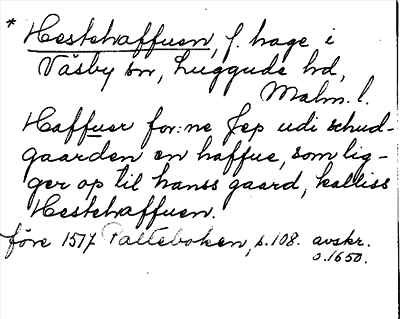 * Hestehaffuen, f. hage i
Väsby sn, Luggude hd,
Malm. l.
Haffuer for:ne Jep udi schud-
gaarden en haffue, som lig-
ger op til hanss gaard, kalliss
Hestehaffuen.
före 1517 Palteboken, s. 108. avskr.
o. 1650.